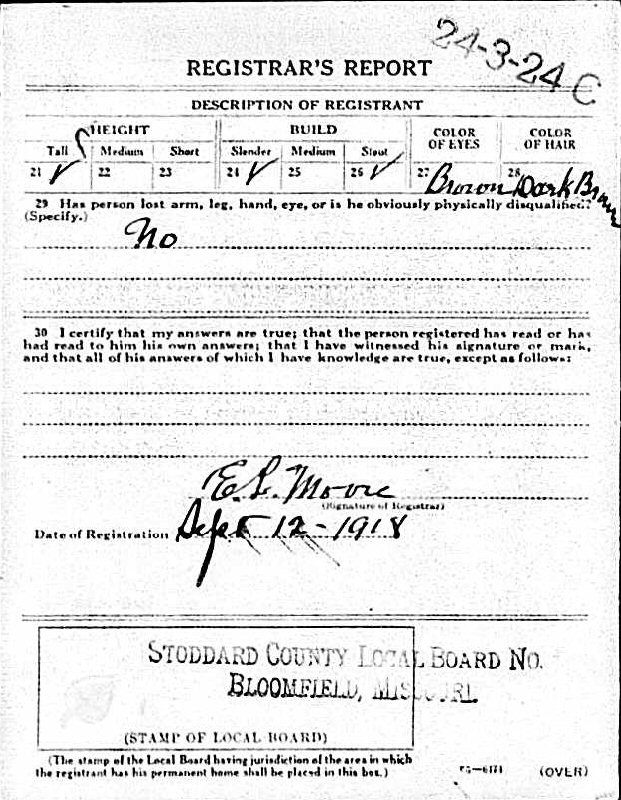 24-3-24 C
REGISTRAR'S REPORT
DESCRIPTION OF REGISTRANT
HEIGHT BUILD COLOR OF EYES COLOR OF HAIR
Tall Medium Short Slender Medium Stout
21 ✓ 22 23 24 ✓ 25 26 ✓ 27 Brown 28 Dark Brown
29 Has person lost arm, leg, hand, eye, or is he obviously physically disqualified?
(Specify.)
No
30 I certify that my answers are true; that the person registered has read or has
had read to him his own answers; that I have witnessed his signature or mark,
and that all of his answers of which I have knowledge are true, except as follows:
E. L. Moore
(Signature of Registrar)
Date of Registration Sept 12-1918
STODDARD COUNTY LOCAL BOARD NO.
BLOOMFIELD, MISSOURI.
(STAMP OF LOCAL BOARD)
(The stamp of the Local Board having jurisdiction of the area in which
the registrant has his permanent home shall be placed in this box.)
(OVER)